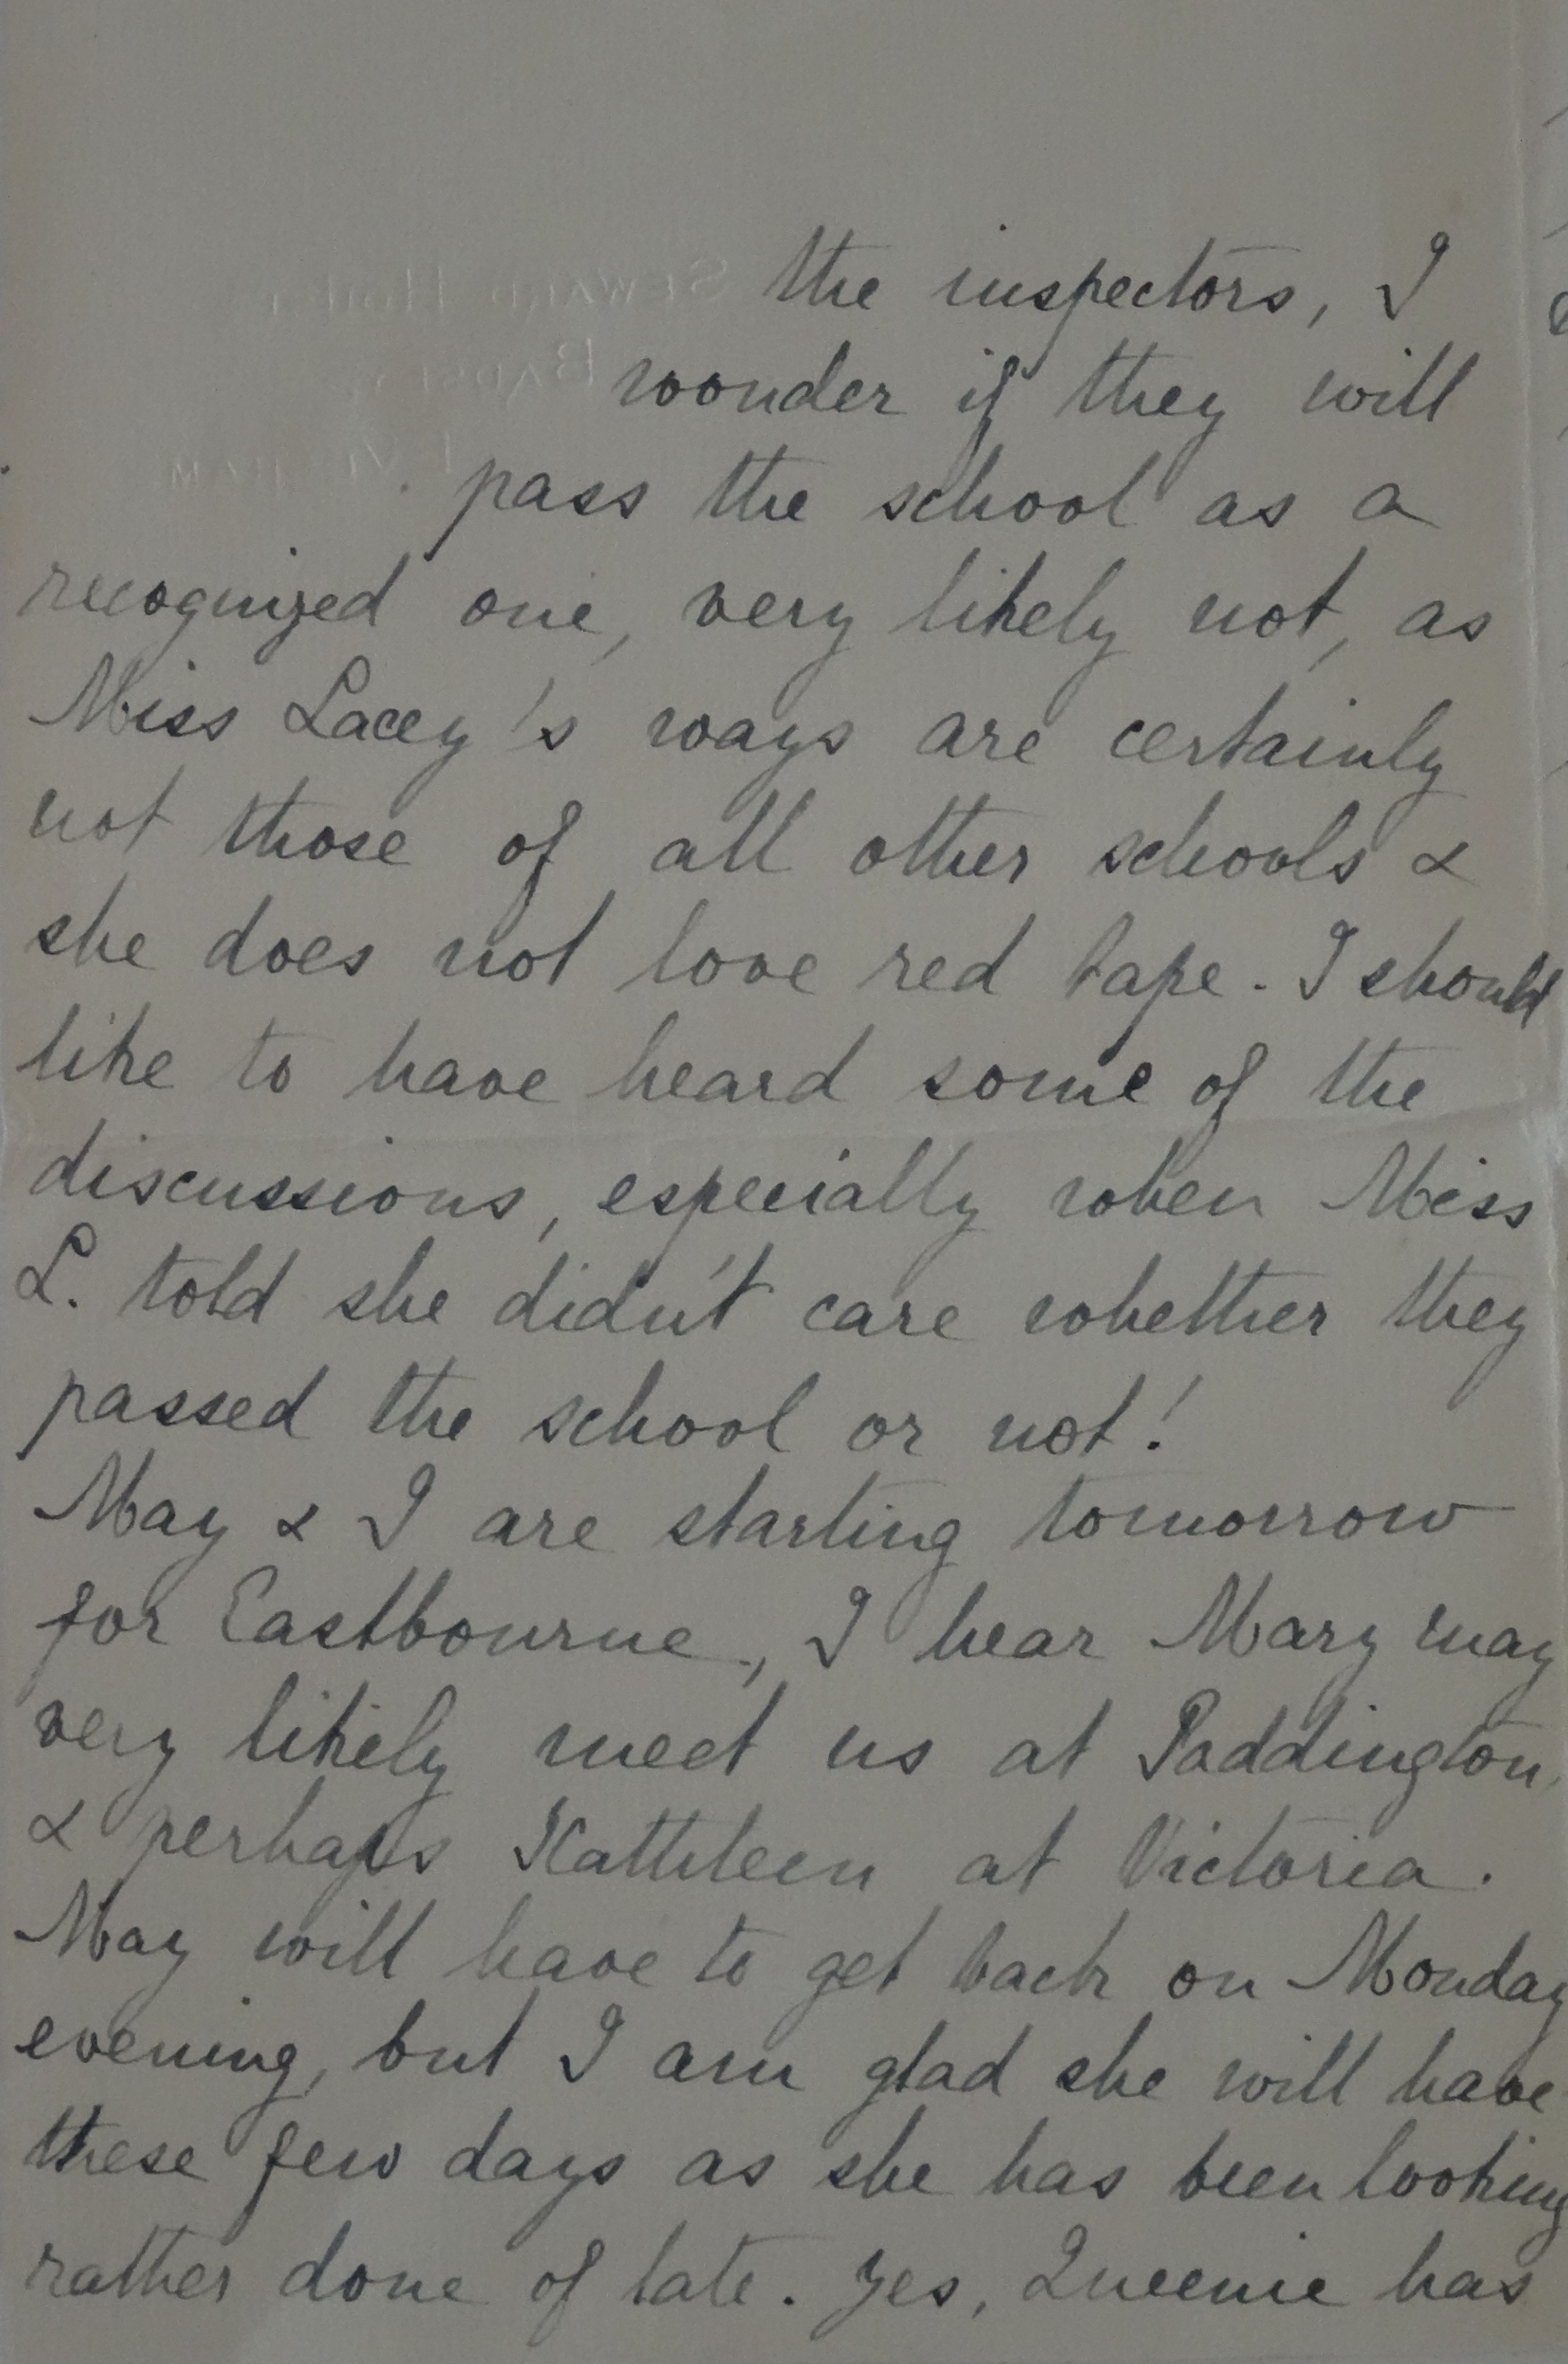 the inspectors, I
wonder if they will
pass the school as a
recognized one, very likely not, as
Miss Lacey's ways are certainly
not those of all other schools &
she does not love red tape. I should
like to have heard some of the
discussions, especially when Miss
L. told she didn't care whether they
passed the school or not!
May & I are starting tomorrow
for Eastbourne, I hear Mary may
very likely meet us at Paddington,
& perhaps Kathleen at Victoria.
May will have to get back on Monday
evening, but I am glad she will have
these few days as she has been looking
rather done of late. Yes, Queenie has